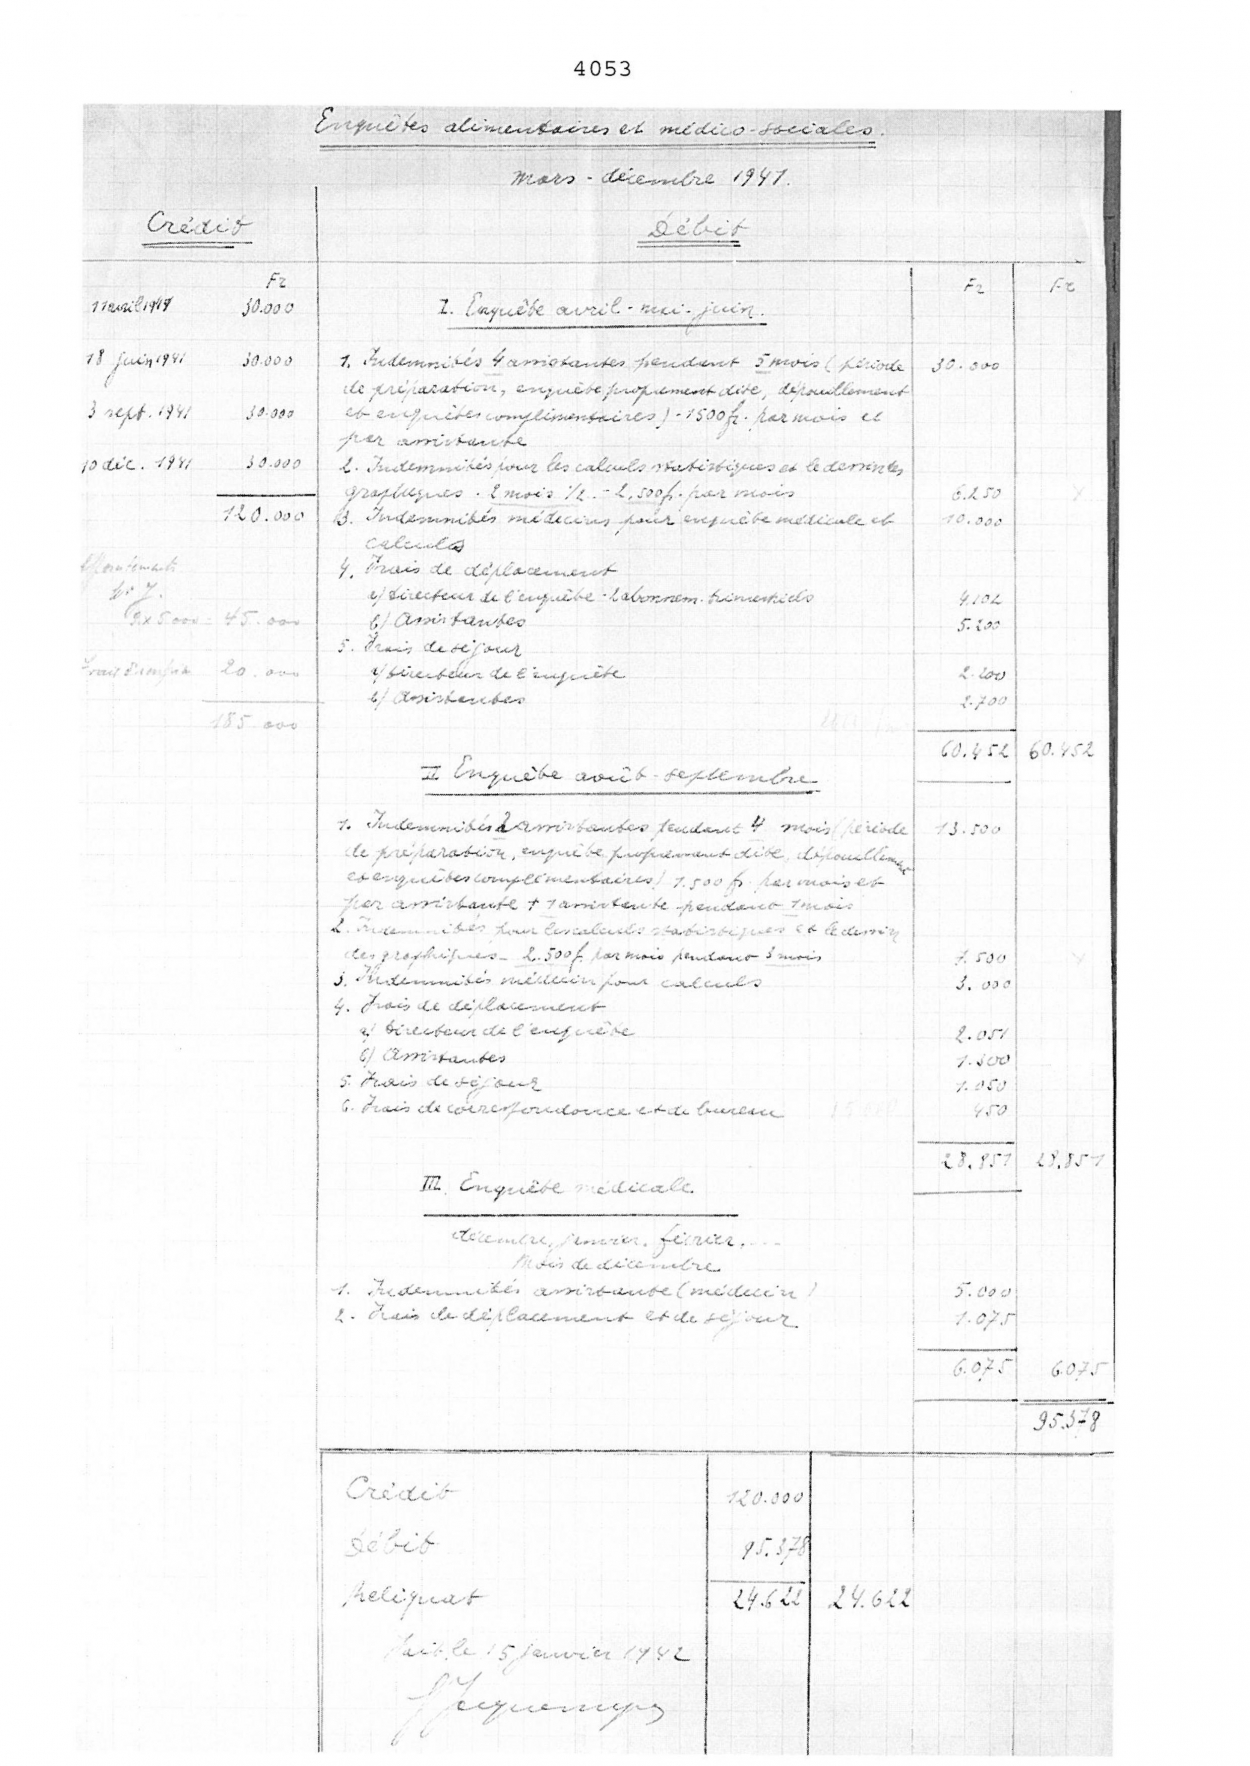 4053
Enquêtes alimentaires et médico-sociales.
Mars - décembre 1941.
Crédit
Fr
11 avril 1941 30.000
18 juin 1941 30.000
3 sept. 1941 30.000
10 déc. 1941 30.000
120.000
9 x 5000 = 45.000
20.000
185.000
Débit
Fr Fr
I. Enquête avril - mai - juin.
1. Indemnités 4 assistantes pendant 5 mois (période 30.000
de préparation, enquête proprement dite, dépouillement
et enquêtes complémentaires) - 1500 fr. par mois et
par assistante
2. Indemnités pour les calculs statistiques et le dessin des
graphiques - 2 mois 1/2 - 2,500 fr. par mois 6.250 x
3. Indemnités médecins pour enquête médicale et 10.000
calculs
4. Frais de déplacement
a) Directeur de l'enquête - 2 abonnem. trimestriels 4.102
b) Assistantes 5.200
5. Frais de séjour
a) Directeur de l'enquête 2.200
b) Assistantes 2.700
60.452 60.452
II Enquête août - septembre
1. Indemnités 2 assistantes pendant 4 mois (période 13.500
de préparation, enquête proprement dite, dépouillement
et enquêtes complémentaires) 1.500 fr par mois et
par assistante + 1 assistante pendant 1 mois
2. Indemnités pour les calculs statistiques et le dessin
des graphiques - 2.500 f. par mois pendant 3 mois 7.500 x
3. Indemnités médecin pour calculs 3.000
4. Frais de déplacement
a) Directeur de l'enquête 2.051
b) Assistantes 1.300
5. Frais de séjour 1.050
6. Frais de correspondance et de bureau 450
28.851 28.851
III. Enquête médicale
décembre, janvier, février, ...
Mois de décembre
1. Indemnités assistante (médecin) 5.000
2. Frais de déplacement et de séjour 1.075
6.075 6.075
95.378
Crédit 120.000
Débit 95.378
Reliquat 24.622 24.622
Fait, le 15 janvier 1942